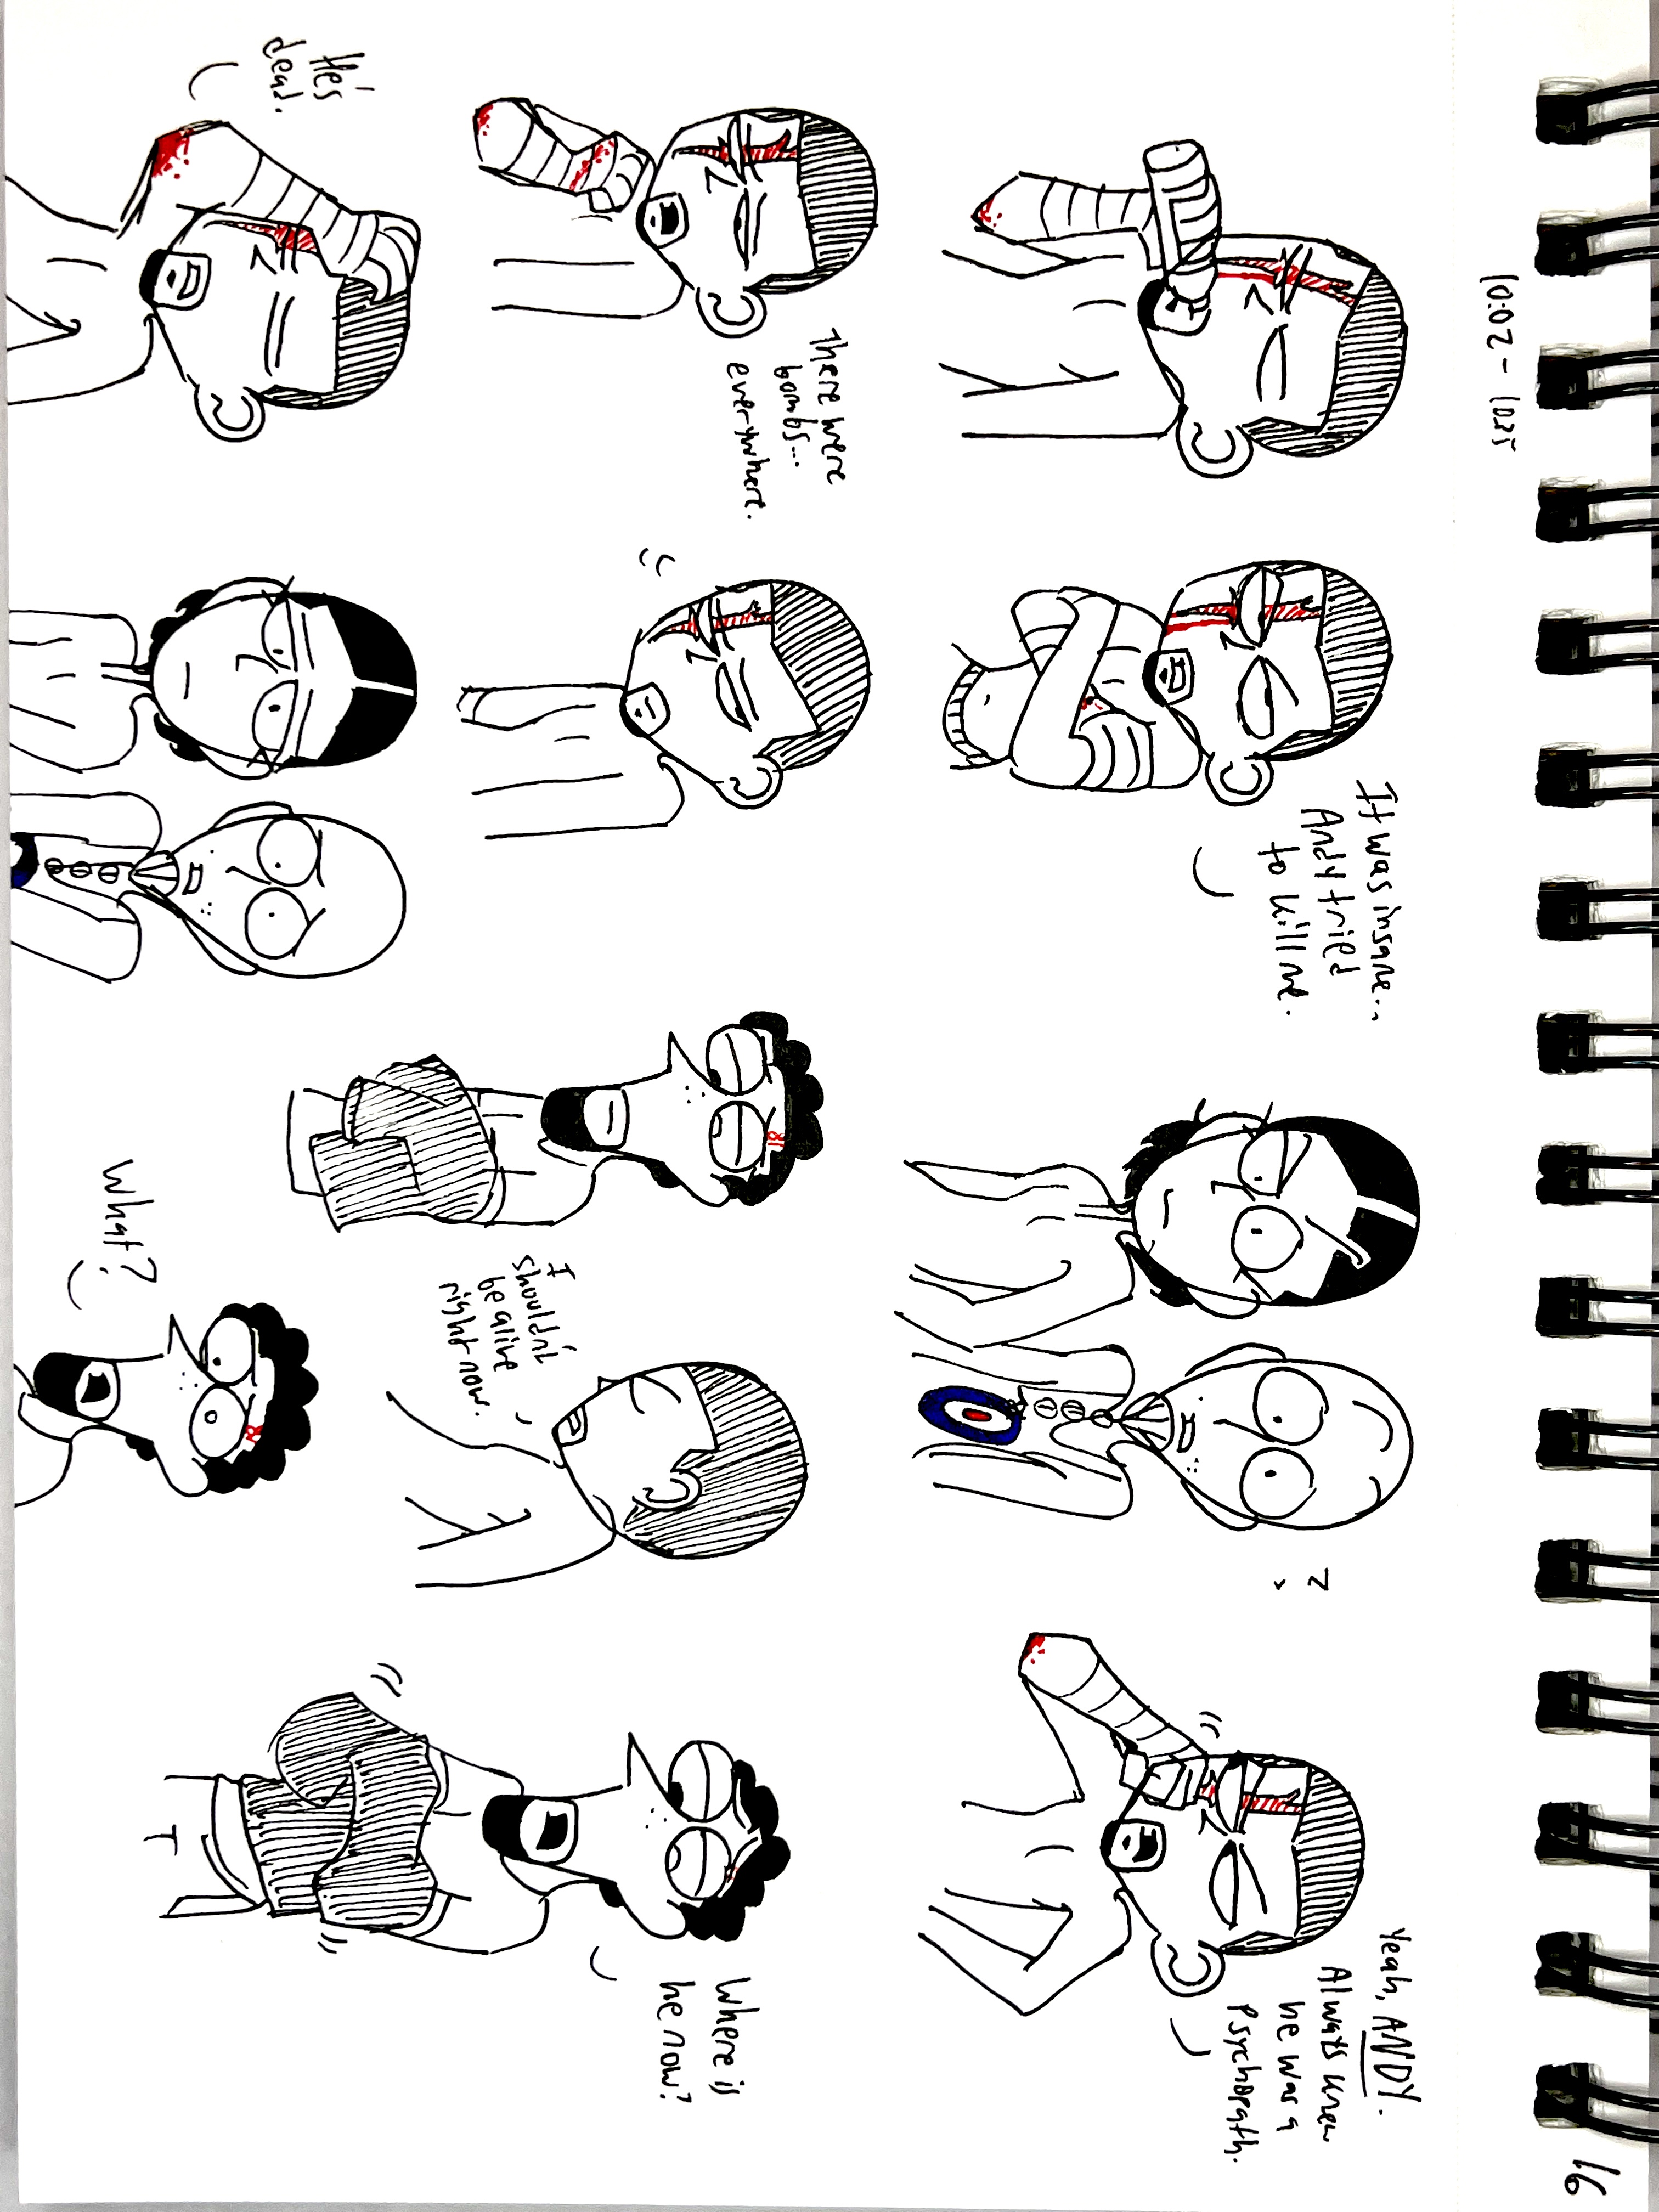 16
10:02 - 1035
It was insane..
Andy tried
to kill me.
?
Yeah, ANDY.
Always knew
he was a
psychopath.
There were
bombs...
everywhere.
I
shouldn't
be alive
right now.
Where is
he now?
He's
dead.
What?
T